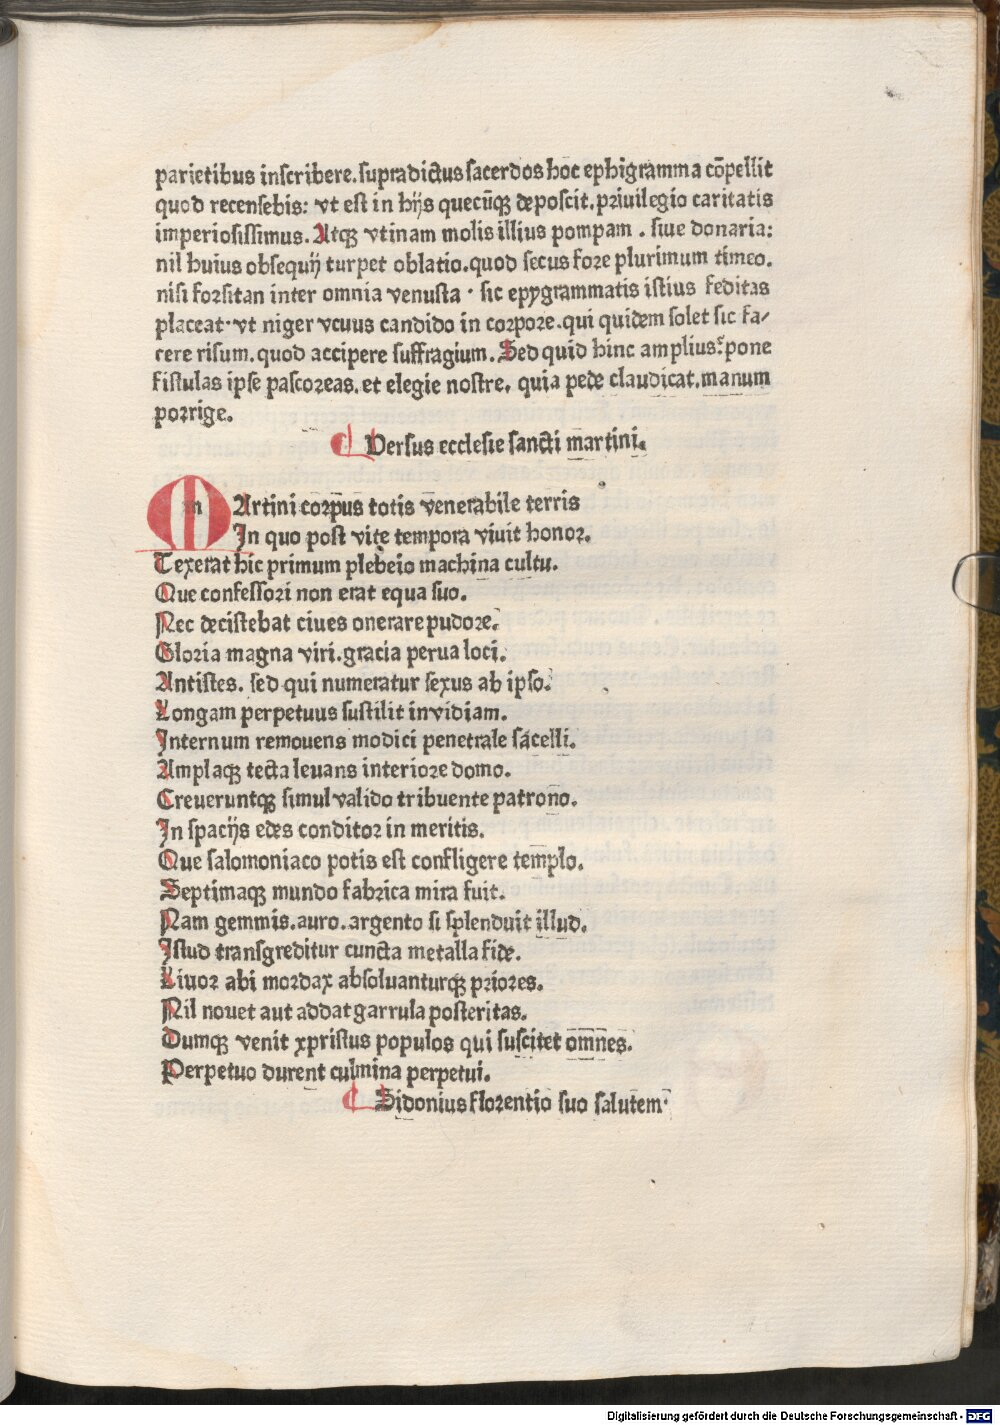 parietibus inscribere. supradictus sacerdos hoc ephigramma cõpellit
quod recensebis: vt est in hijs quecũqꝫ deposcit. priuilegio caritatis
imperiosissimus. Atqꝫ vtinam molis illius pompam . siue donaria:
nil huius obsequij turpet oblatio. quod secus fore plurimum timeo.
nisi forsitan inter omnia venusta · sic epygrammatis istius feditas
placeat· vt niger vcuus candido in corpore. qui quidem solet sic fa/
cere risum. quod accipere suffragium. Sed quid hinc amplius? pone
fistulas ipse pascoreas. et elegie nostre, quia pede claudicat. manum
porrige.
Versus ecclesie sancti martini.
m Artini corpus totis venerabile terris
In quo post vite tempora viuit honor.
Texerat hic primum plebeio machina cultu.
Que confessori non erat equa suo.
Nec decistebat ciues onerare pudore.
Gloria magna viri. gracia perua loci.
Antistes. sed qui numeratur sexus ab ipso.
Longam perpetuus sustilit invidiam.
Internum remouens modici penetrale sacelli.
Amplaqꝫ tecta leuans interiore domo.
Creueruntqꝫ simul valido tribuente patrono.
In spacijs edes conditor in meritis.
Que salomoniaco potis est confligere templo.
Septimaqꝫ mundo fabrica mira fuit.
Nam gemmis. auro. argento si splenduit illud.
Istud transgreditur cuncta metalla fide.
Liuor abi mordax absoluanturqꝫ priores.
Nil nouet aut addat garrula posteritas.
Dumqꝫ venit xpristus populos qui suscitet omnes.
Perpetuo durent culmina perpetui.
Sidonius florentio suo salutem·
Digitalisierung gefördert durch die Deutsche Forschungsgemeinschaft - DFG